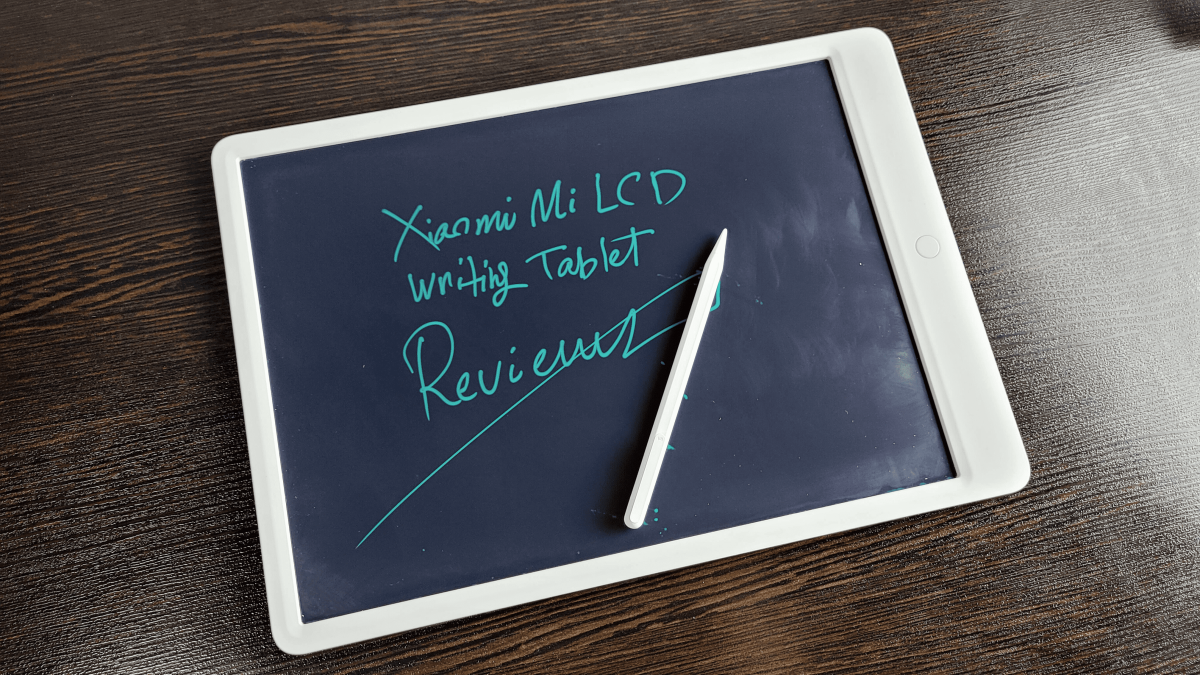 Xiaomi Mi LCD
Writing Tablet
Review